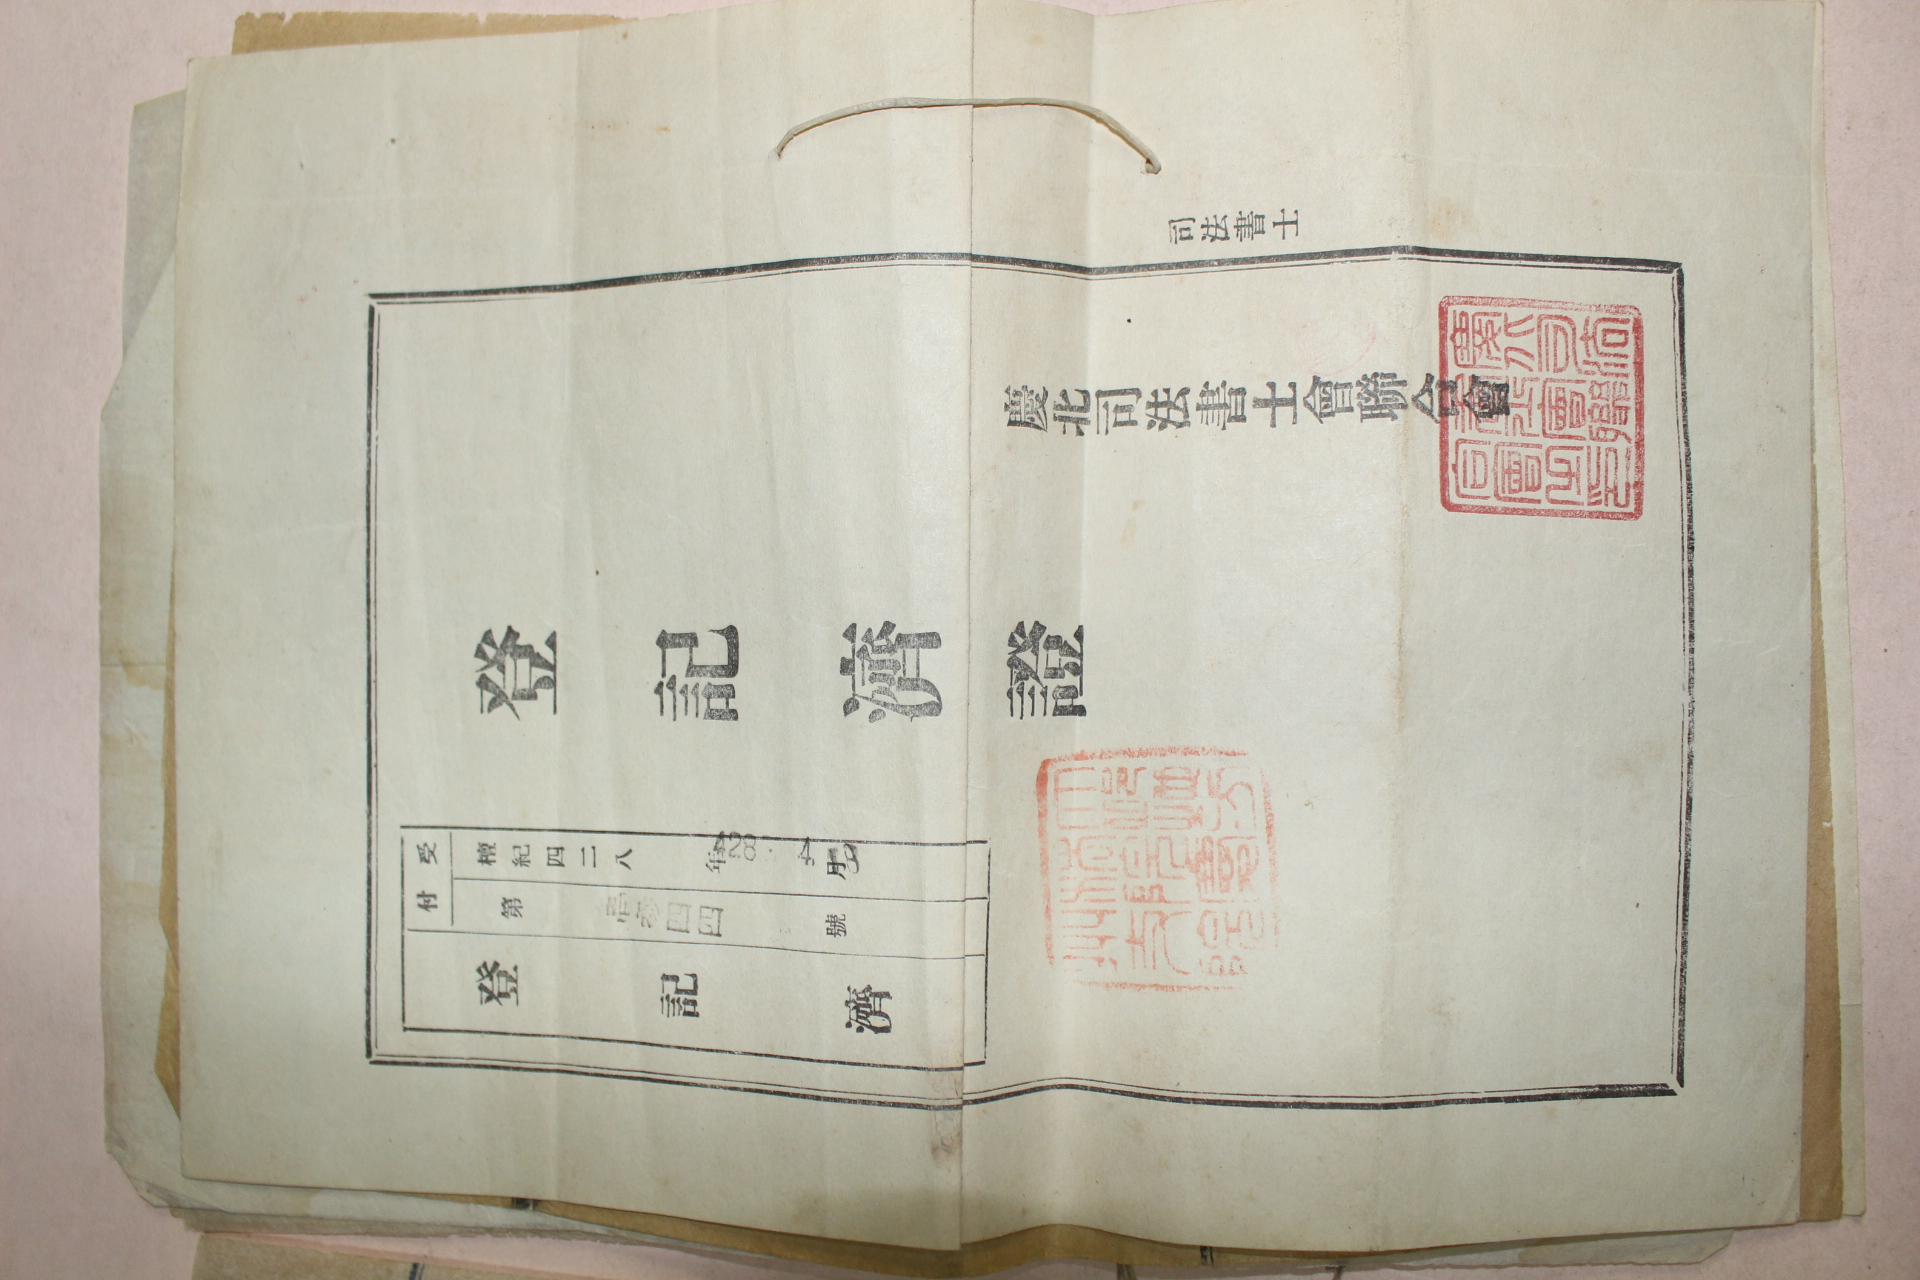 登記濟證
慶北司法書士會聯合會
司法書士
受付
檀紀四二八 年 月
第壹參四四號
登記濟